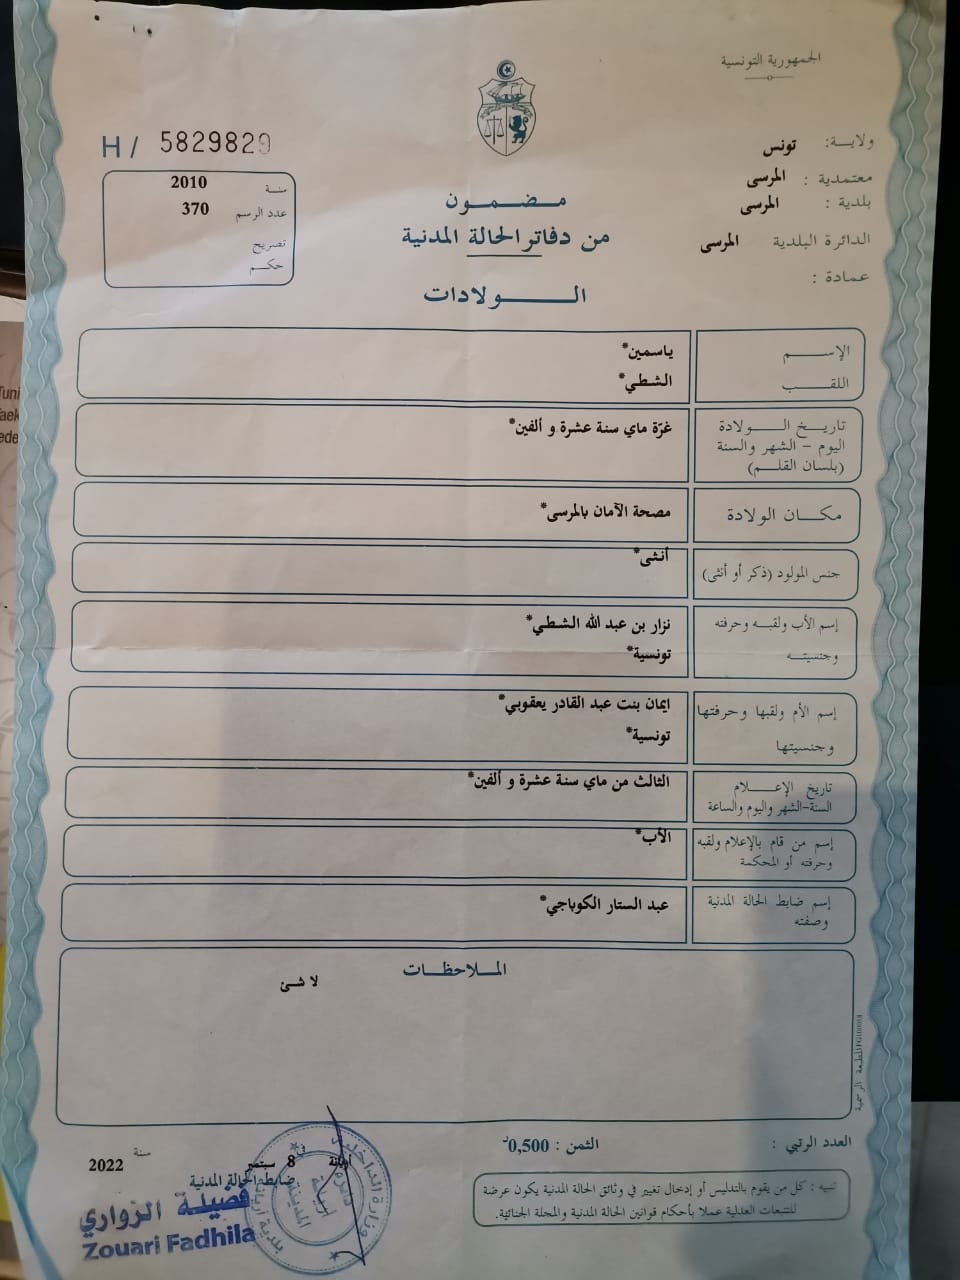 الجمهورية التونسية
ولاية: تونس
معتمدية : المرسى
بلدية : المرسى
الدائرة البلدية المرسى
عمادة :
H/ 5829829
سنة 2010
عدد الرسم 370
تصريح
حكم
مضمون
من دفاتر الحالة المدنية
الولادات
الإسم ياسمين*
اللقب الشطي*
تاريخ الولادة
اليوم - الشهر والسنة
(بلسان القلم)
غرّة ماي سنة عشرة و ألفين*
مكان الولادة مصحة الآمان بالمرسى*
جنس المولود (ذكر أو أنثى) أنثى*
إسم الأب ولقبه وحرفته
وجنسيته
نزار بن عبد الله الشطي*
تونسية*
إسم الأم ولقبها وحرفتها
وجنسيتها
ايمان بنت عبد القادر يعقوبي*
تونسية*
تاريخ الإعلام
السنة-الشهر واليوم والساعة
الثالث من ماي سنة عشرة و ألفين*
إسم من قام بالإعلام ولقبه
وحرفته أو المحكمة
الأب*
إسم ضابط الحالة المدنية
وصفته
عبد الستار الكوباجي*
الملاحظات
لا شئ
العدد الرتبي :
الثمن : 0,500د
تنبيه : كل من يقوم بالتدليس أو إدخال تغيير في وثائق الحالة المدنية يكون عرضة
للتتبعات العدلية عملا بأحكام قوانين الحالة المدنية والمجلة الجنائية.
أريانة في 8 سبتمبر سنة 2022
ضابط الحالة المدنية
فضيلة الزواري
Zouari Fadhila
وزارة الداخلية
بلدية أريانة
دائرة
أريانة
المدينة
المطبعة الرسمية
Tuni
aek
ede